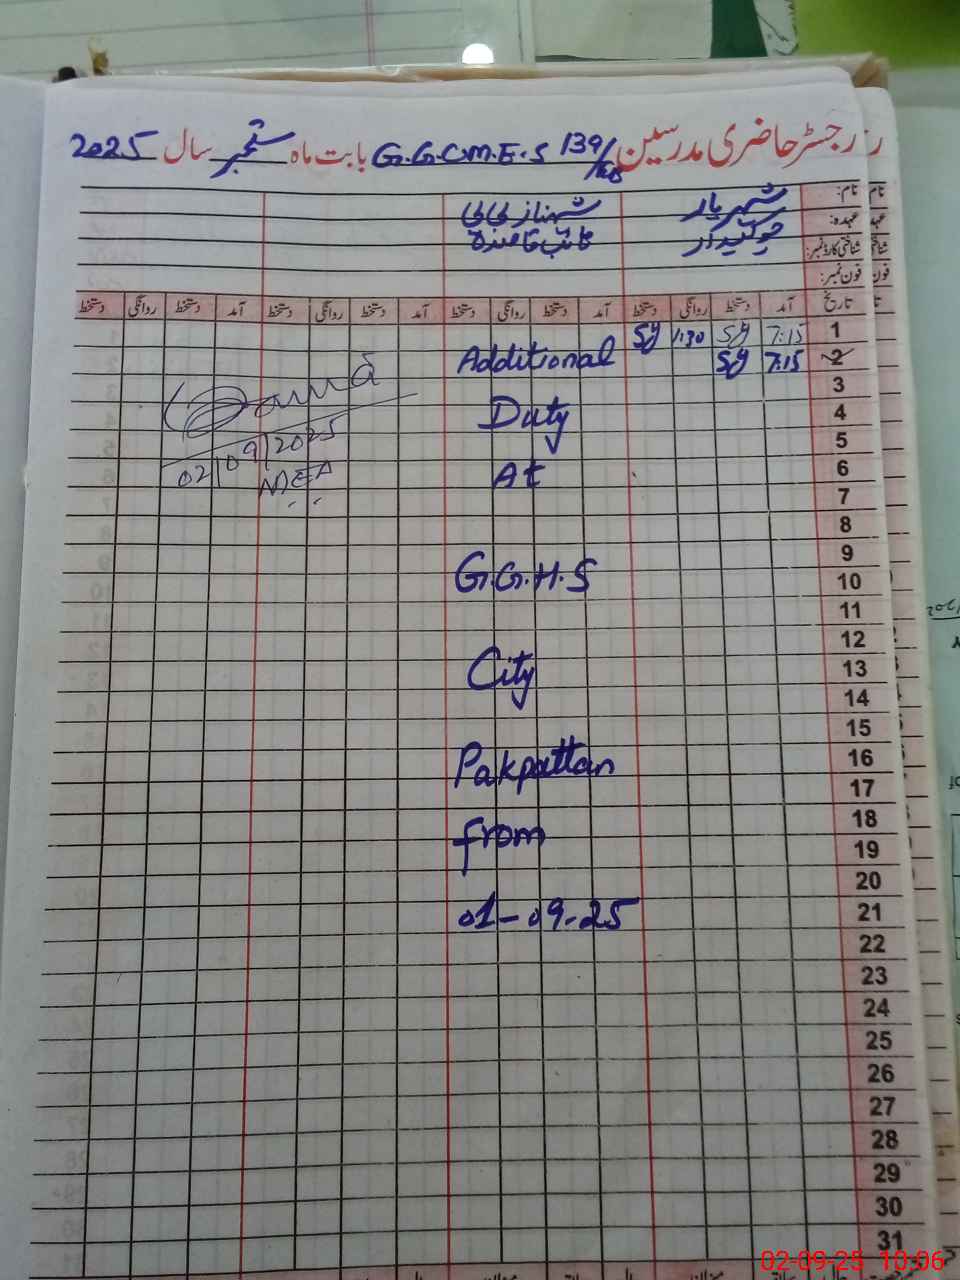 رجسٹر حاضری مدرسین G.G.C.M.E.S 139/ بابت ماہ ستمبر سال 2025
نام: شہریار شہناز بی بی
عہدہ: چوکیدار نائب قاصدہ
شناختی کارڈ نمبر:
فون نمبر:
تاریخ آمد دستخط روانگی دستخط آمد دستخط روانگی دستخط آمد دستخط روانگی دستخط آمد دستخط روانگی دستخط
1 7:15 SY 1:30 SY
2 7:15 SY
Additional
3
4
Duty
5
6
At
7
8
9
10
G.G.H.S
11
12
13
City
14
15
16
Pakpattan
17
18
19
from
20
21
01-09-25
22
23
24
25
26
27
28
29
30
31
02/09/2025
MEA
02-09-25 10:06